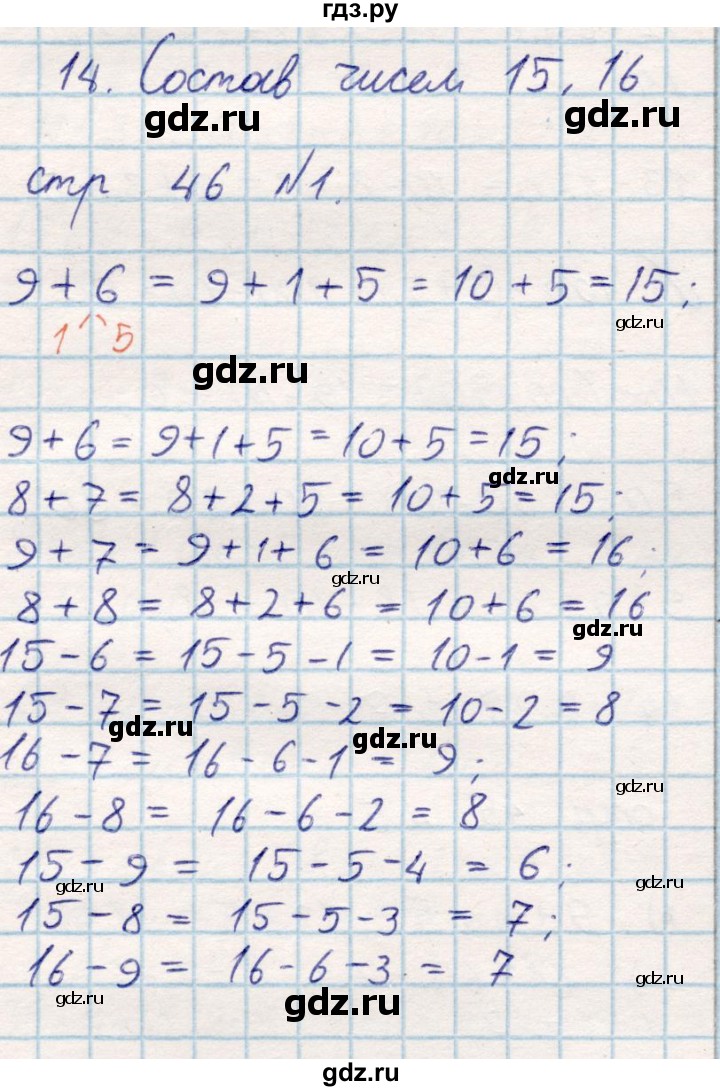 гдз.ру
18. Состав чисел 15, 16
gdz.ru
gdz.ru
стр 46 №1.
9 + 6 = 9 + 1 + 5 = 10 + 5 = 15;
gdz.ru
1 5
gdz.ru
9 + 6 = 9 + 1 + 5 = 10 + 5 = 15;
gdz.ru
8 + 7 = 8 + 2 + 5 = 10 + 5 = 15;
9 + 7 = 9 + 1 + 6 = 10 + 6 = 16;
gdz.ru
8 + 8 = 8 + 2 + 6 = 10 + 6 = 16
gdz.ru
15 - 6 = 15 - 5 - 1 = 10 - 1 = 9
15 - 7 = 15 - 5 - 2 = 10 - 2 = 8
gdz.ru
gdz.ru
16 - 7 = 16 - 6 - 1 = 9;
gdz.ru
16 - 8 = 16 - 6 - 2 = 8
15 - 9 = 15 - 5 - 4 = 6;
gdz.ru
gdz.ru
15 - 8 = 15 - 5 - 3 = 7;
16 - 9 = 16 - 6 - 3 = 7
gdz.ru
gdz.ru
gdz.ru
гдз.ру